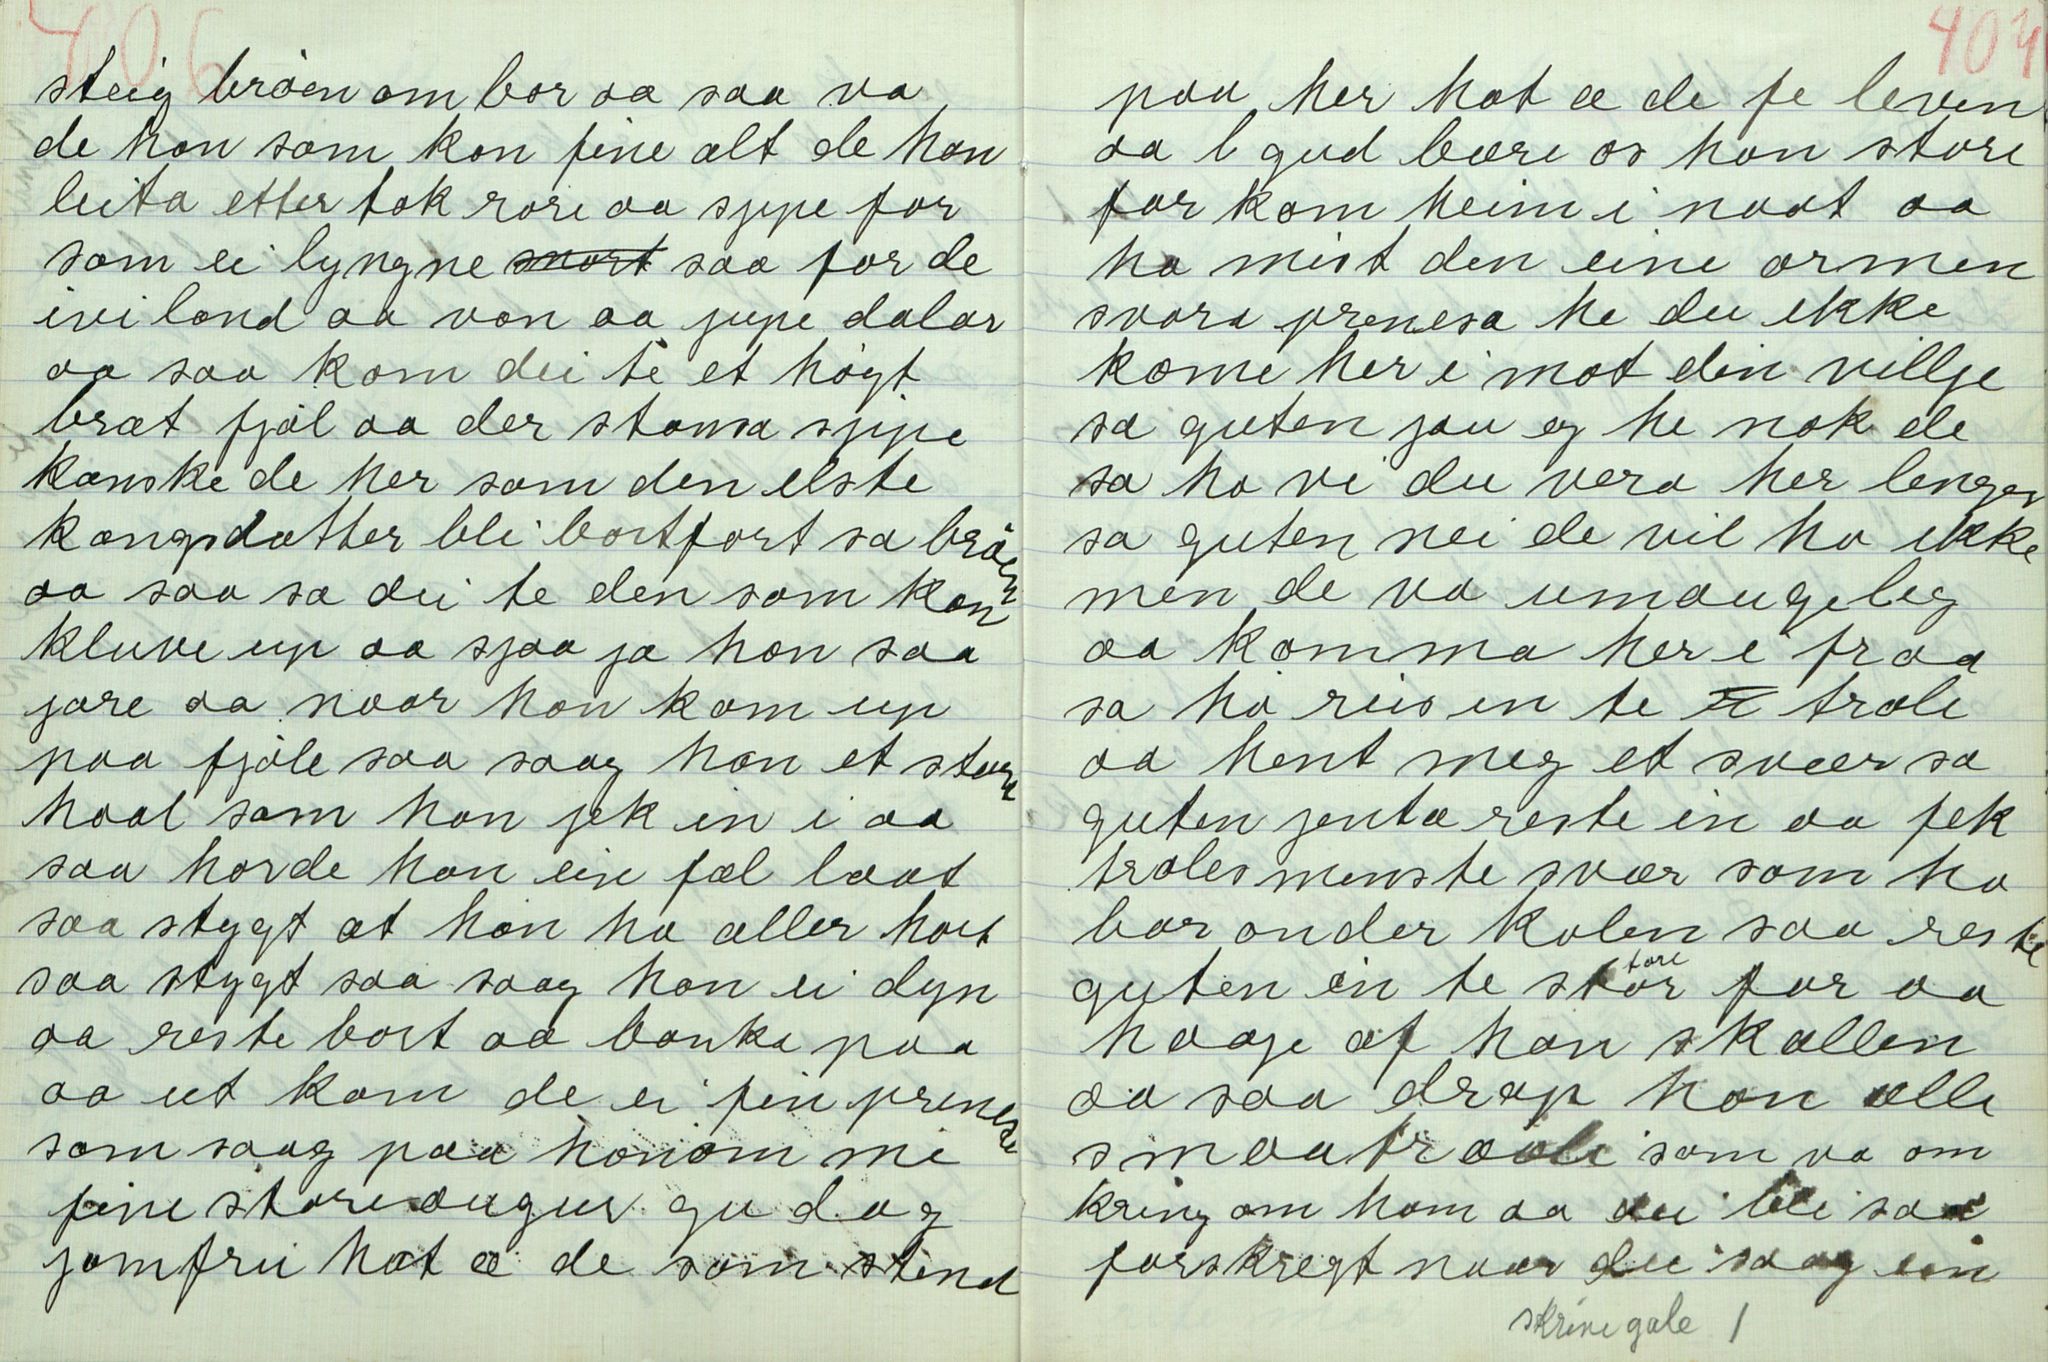 406
steig bröen om bor aa saa va
de han som kan fine alt de han
leita etter tok rore aa sjipe for
som ei lyngne snort saa for de
ivi land aa van aa jupe dalar
aa saa kom dei te et högt
bræt fjöl aa der stansa sjipe
kanske de her som den elste
kongsdatter blei bortfort sa bröen
aa saa sa dei te den som kan
kluve up aa sjaa ja han saa
jore aa naar han kom up
paa fjöle saa saag han et stort
haal som han jek in i aa
saa horde han ein fæl laat
saa stygt at han ha aller hort
saa stygt saa saag han ei dyn
aa reste bort aa banka paa
aa ut kom de ei fin prinese
som saag paa honom mi
fine store augur gu dag
jomfru hot æ de som stend
407
paa her hot æ de fe leven
aa l gud bære os han store
far kom heim i naat aa
ha mist den eine armen
svara prenesa he du ikke
kome her i mot din villje
sa guten jau eg he nok de
sa ho vi du vera her lenger
sa guten nei de vil ho ikke
men de va umaugeleg
aa komma her i fraa
sa ho reis in te trole
aa hent meg et svær sa
guten jenta reste in aa fek
troles menste svær som ho
bar onder kolen saa reste
guten in te stor tore far aa
haage af han skallen
aa saa drap han alle
smaatraale som va om
kring om ham aa dei blei saa
forskregt naar dei saag ein
skrive gale /